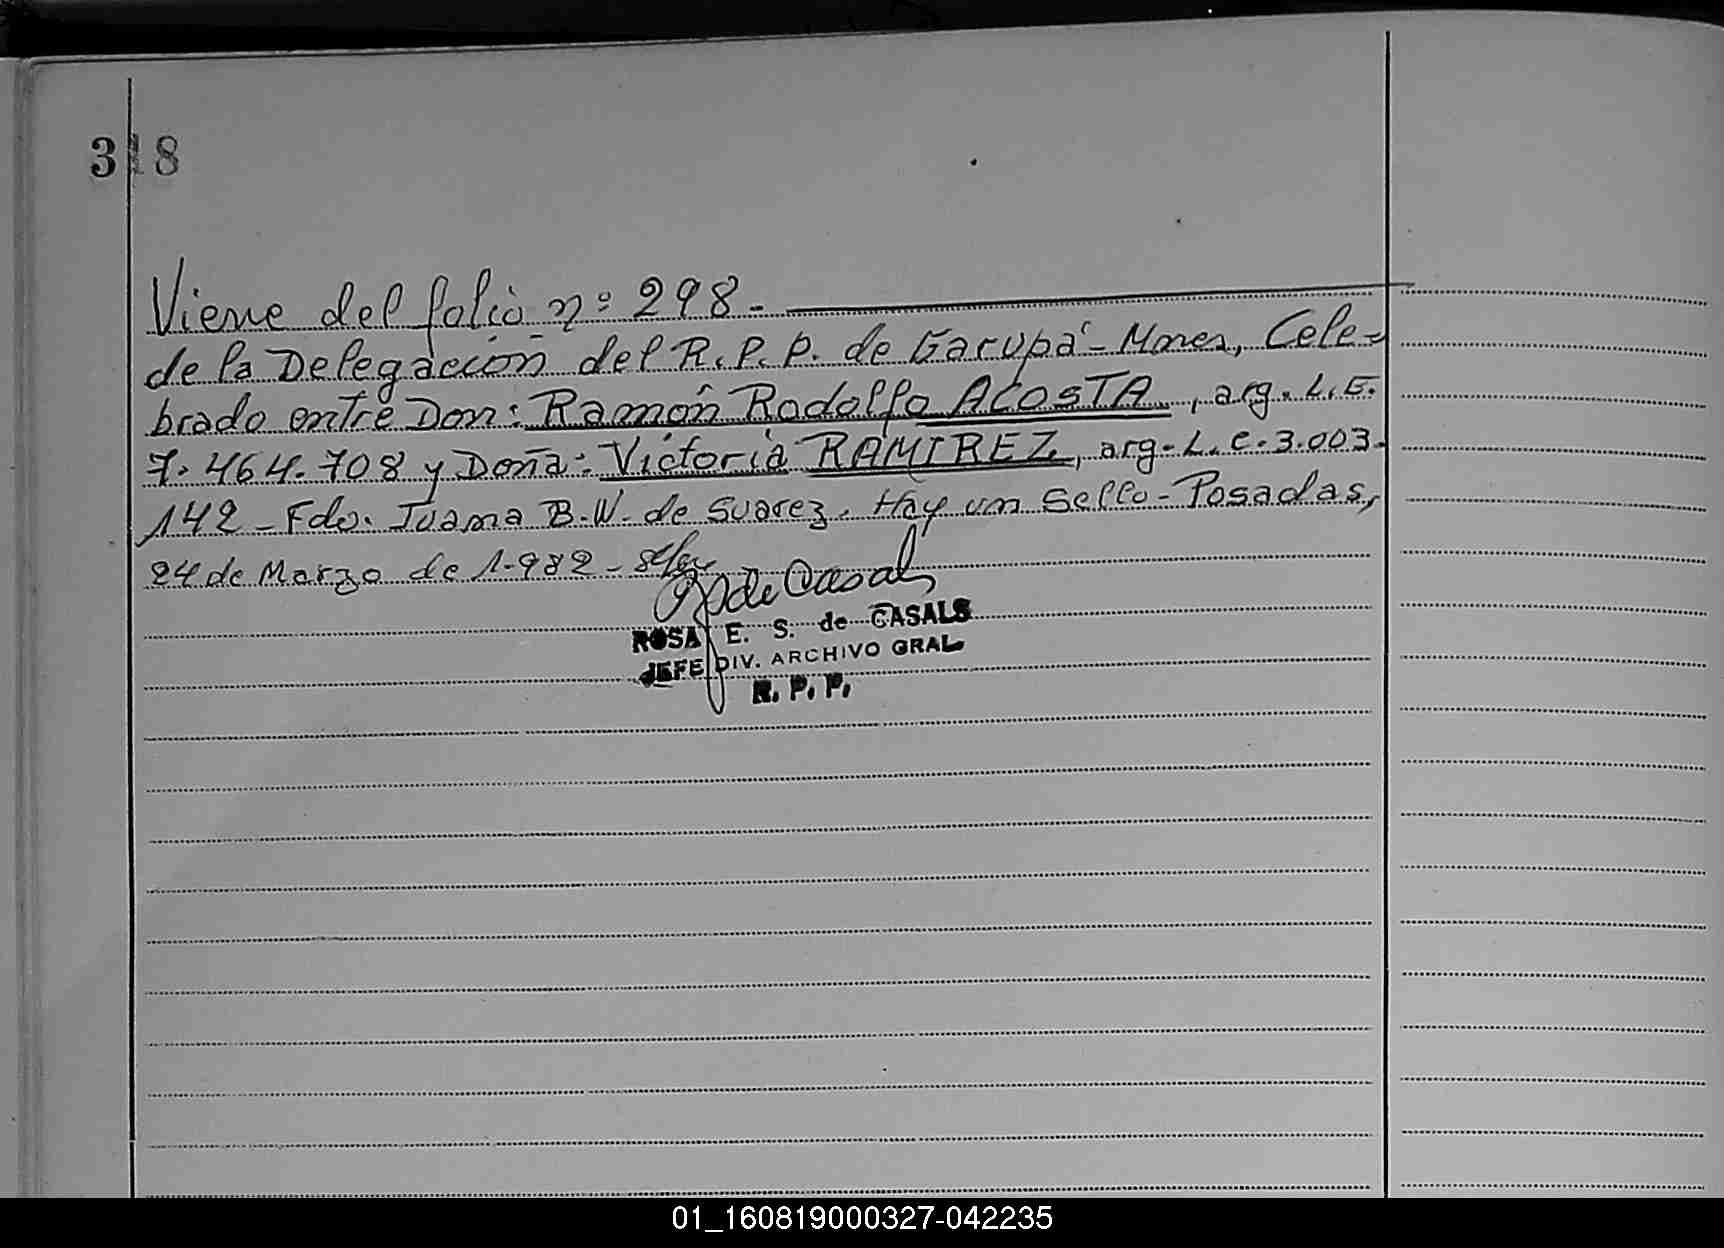 318
Viene del folio nº 298.
de la Delegación del R.P.P. de Garupá - Mnes, Cele-
brado entre Don: Ramón Rodolfo ACOSTA, arg. L.E.
7.464.708 y Doña: Victoria RAMIREZ, arg- L.C. 3.003.
142 - Fdo. Juana B.W. de Suarez. Hay un Sello - Posadas,
24 de Marzo de 1.982 -
de Casals
ROSA E. S. de CASALS
JEFE DIV. ARCHIVO GRAL
R. P. P.
01_160819000327-042235